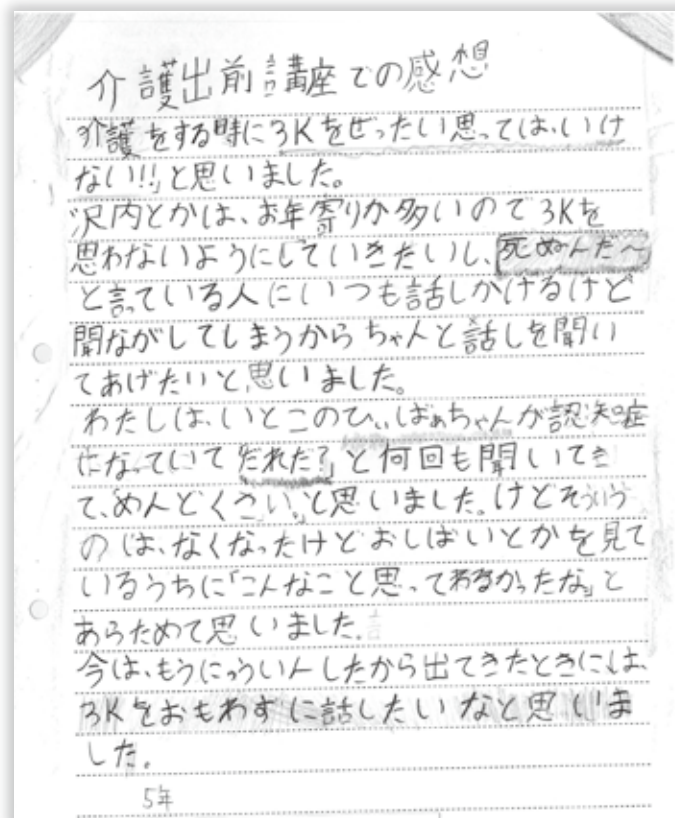 介護出前講座での感想
介護をする時に3Kをぜったい思っては、いけ
ない!!」と思いました。
沢内とかは、お年寄りが多いので3Kを
思わないようにしていきたいし、死ぬんだ〜」
と言っている人にいつも話しかけるけど
聞ながしてしまうからちゃんと話しを聞い
てあげたいと思いました。
わたしは、いとこのひぃばぁちゃんが認知症
になっていてだれだ?」と何回も聞いてき
て、めんどくさい。と思いました。けどそういう
のは、なくなったけどおしばいとかを見て
いるうちに「こんなこと思ってわるかったな」と
あらためて思いました。
今は、もうにゅういんしたから出てきたときには、
3Kをおもわずに話したいなと思いま
した。
5年